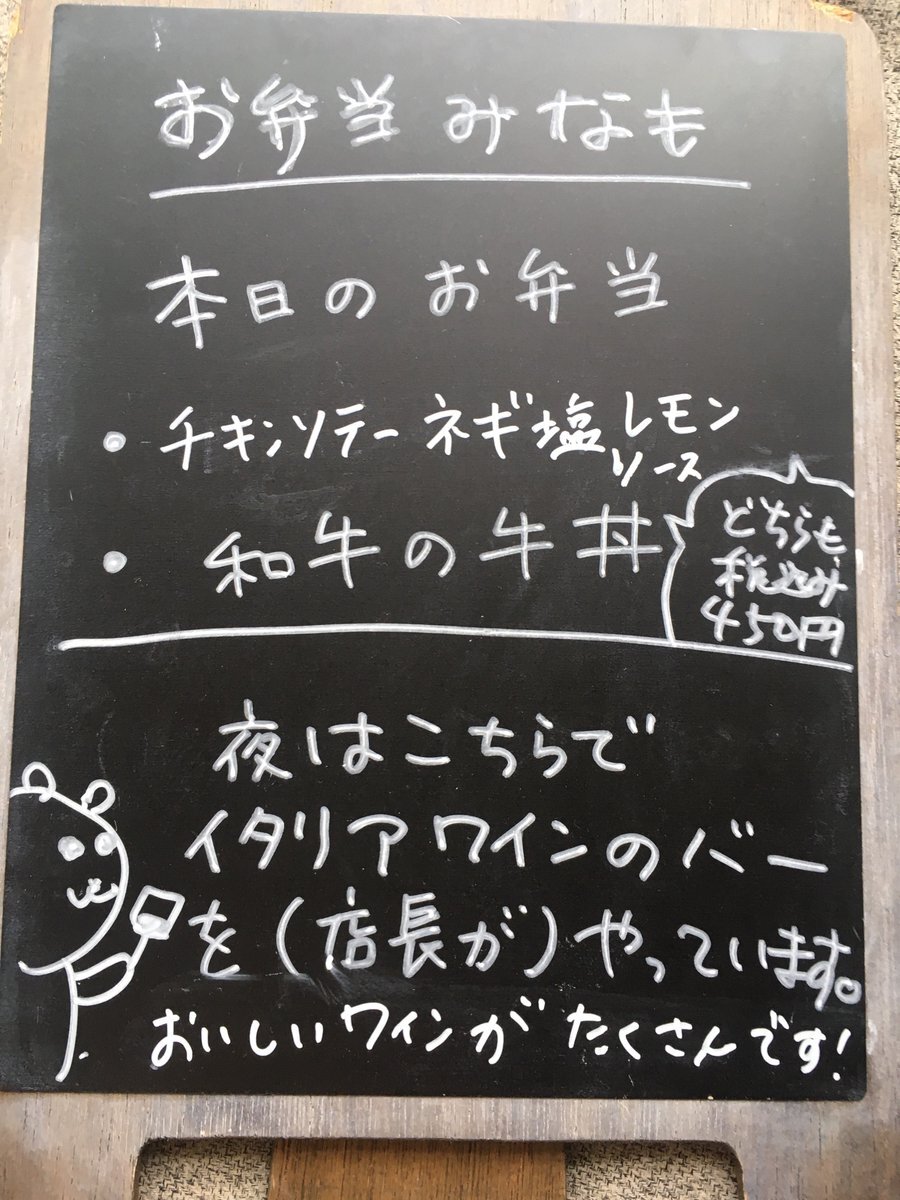 お弁当 みなも
本日の お弁当
・ チキンソテー ネギ塩レモン
ソース
・ 和牛の牛丼
どちらも
税込み
450円
夜はこちらで
イタリアワインのバー
を(店長が)やっています。
おいしいワインが たくさんです!